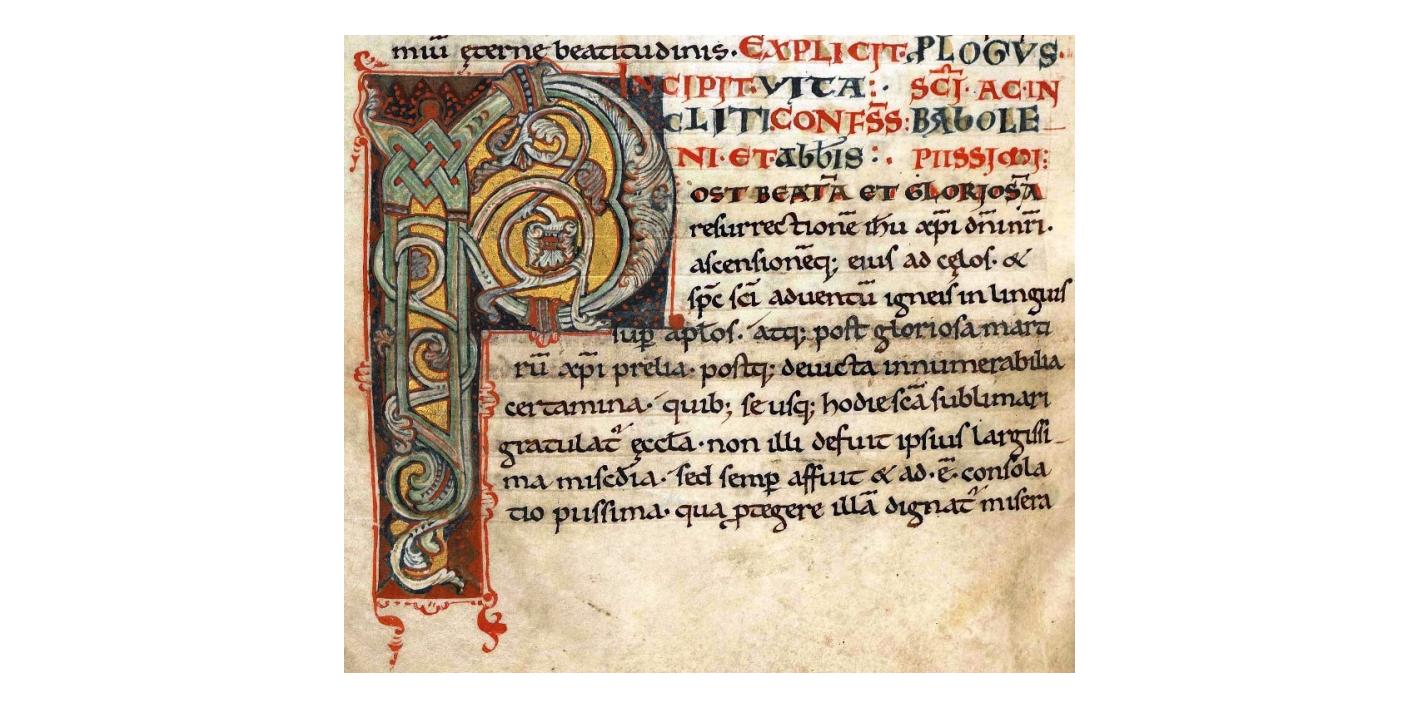 miū ęterne beatitudinis. EXPLICIT PLOGVS.
INCIPIT VITA SC̄I AC IN
CLITI CONFS̄S BABOLE
NI ET ABBIS PIISSIMI:
POST BEATĀ ET GLORIOSĀ
resurrectionē ih̄u xp̄i dn̄i nr̄i.
ascensionēq; eius ad cęlos. &
sp̄c sc̄i aduentū igneis in linguis
sup̄ ap̄los. atq; post gloriosa marti
rū xp̄i prelia. postq; deuicta innumerabilia
certamina. quib; se usq; hodie sc̄ā sublimari
gratulat᷑ ęccl̄a. non illi defuit ipsius largissi
ma misc̄dia. sed semp̄ affuit & ad ē consola
tio piissima. qua ꝓtegere illā dignat᷑ misera